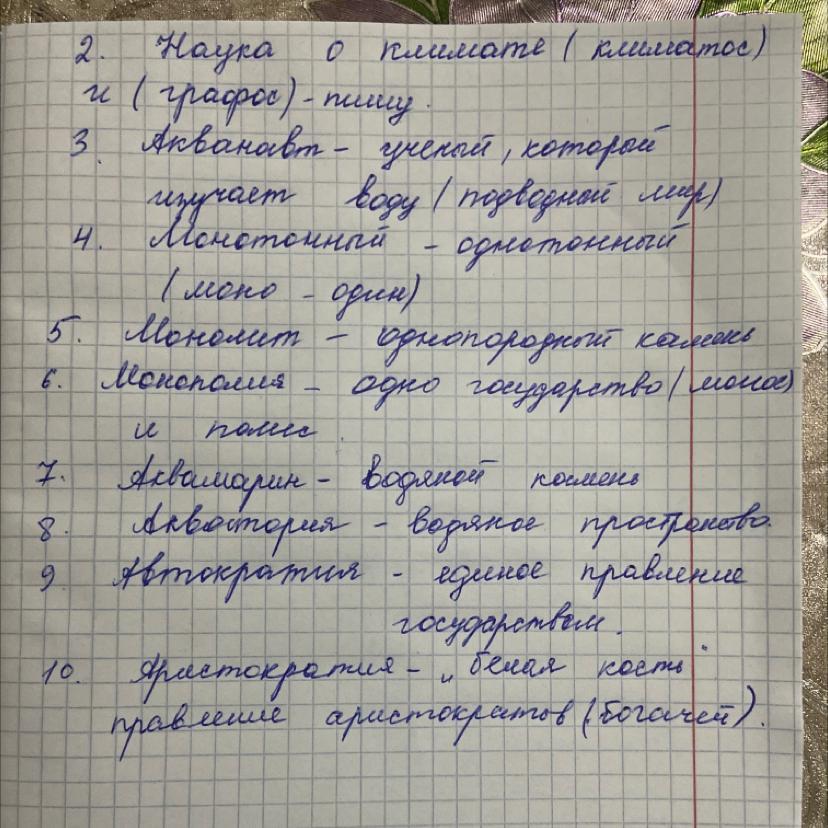 2. Наука о климате (климатос)
и (графос) - пишу.
3. Акванавт - ученый, который
изучает воду (подводной мир)
4. Монотонный - однотонный
(моно - один)
5. Монолит - однопородный камень
6. Монополия - одно государство (монос)
и полис.
7. Аквамарин - водяной камень
8. Акватория - водяное пространство.
9. Автократия - единое правление
государством.
10. Аристократия - „белая кость"
правление аристократов (богачей).